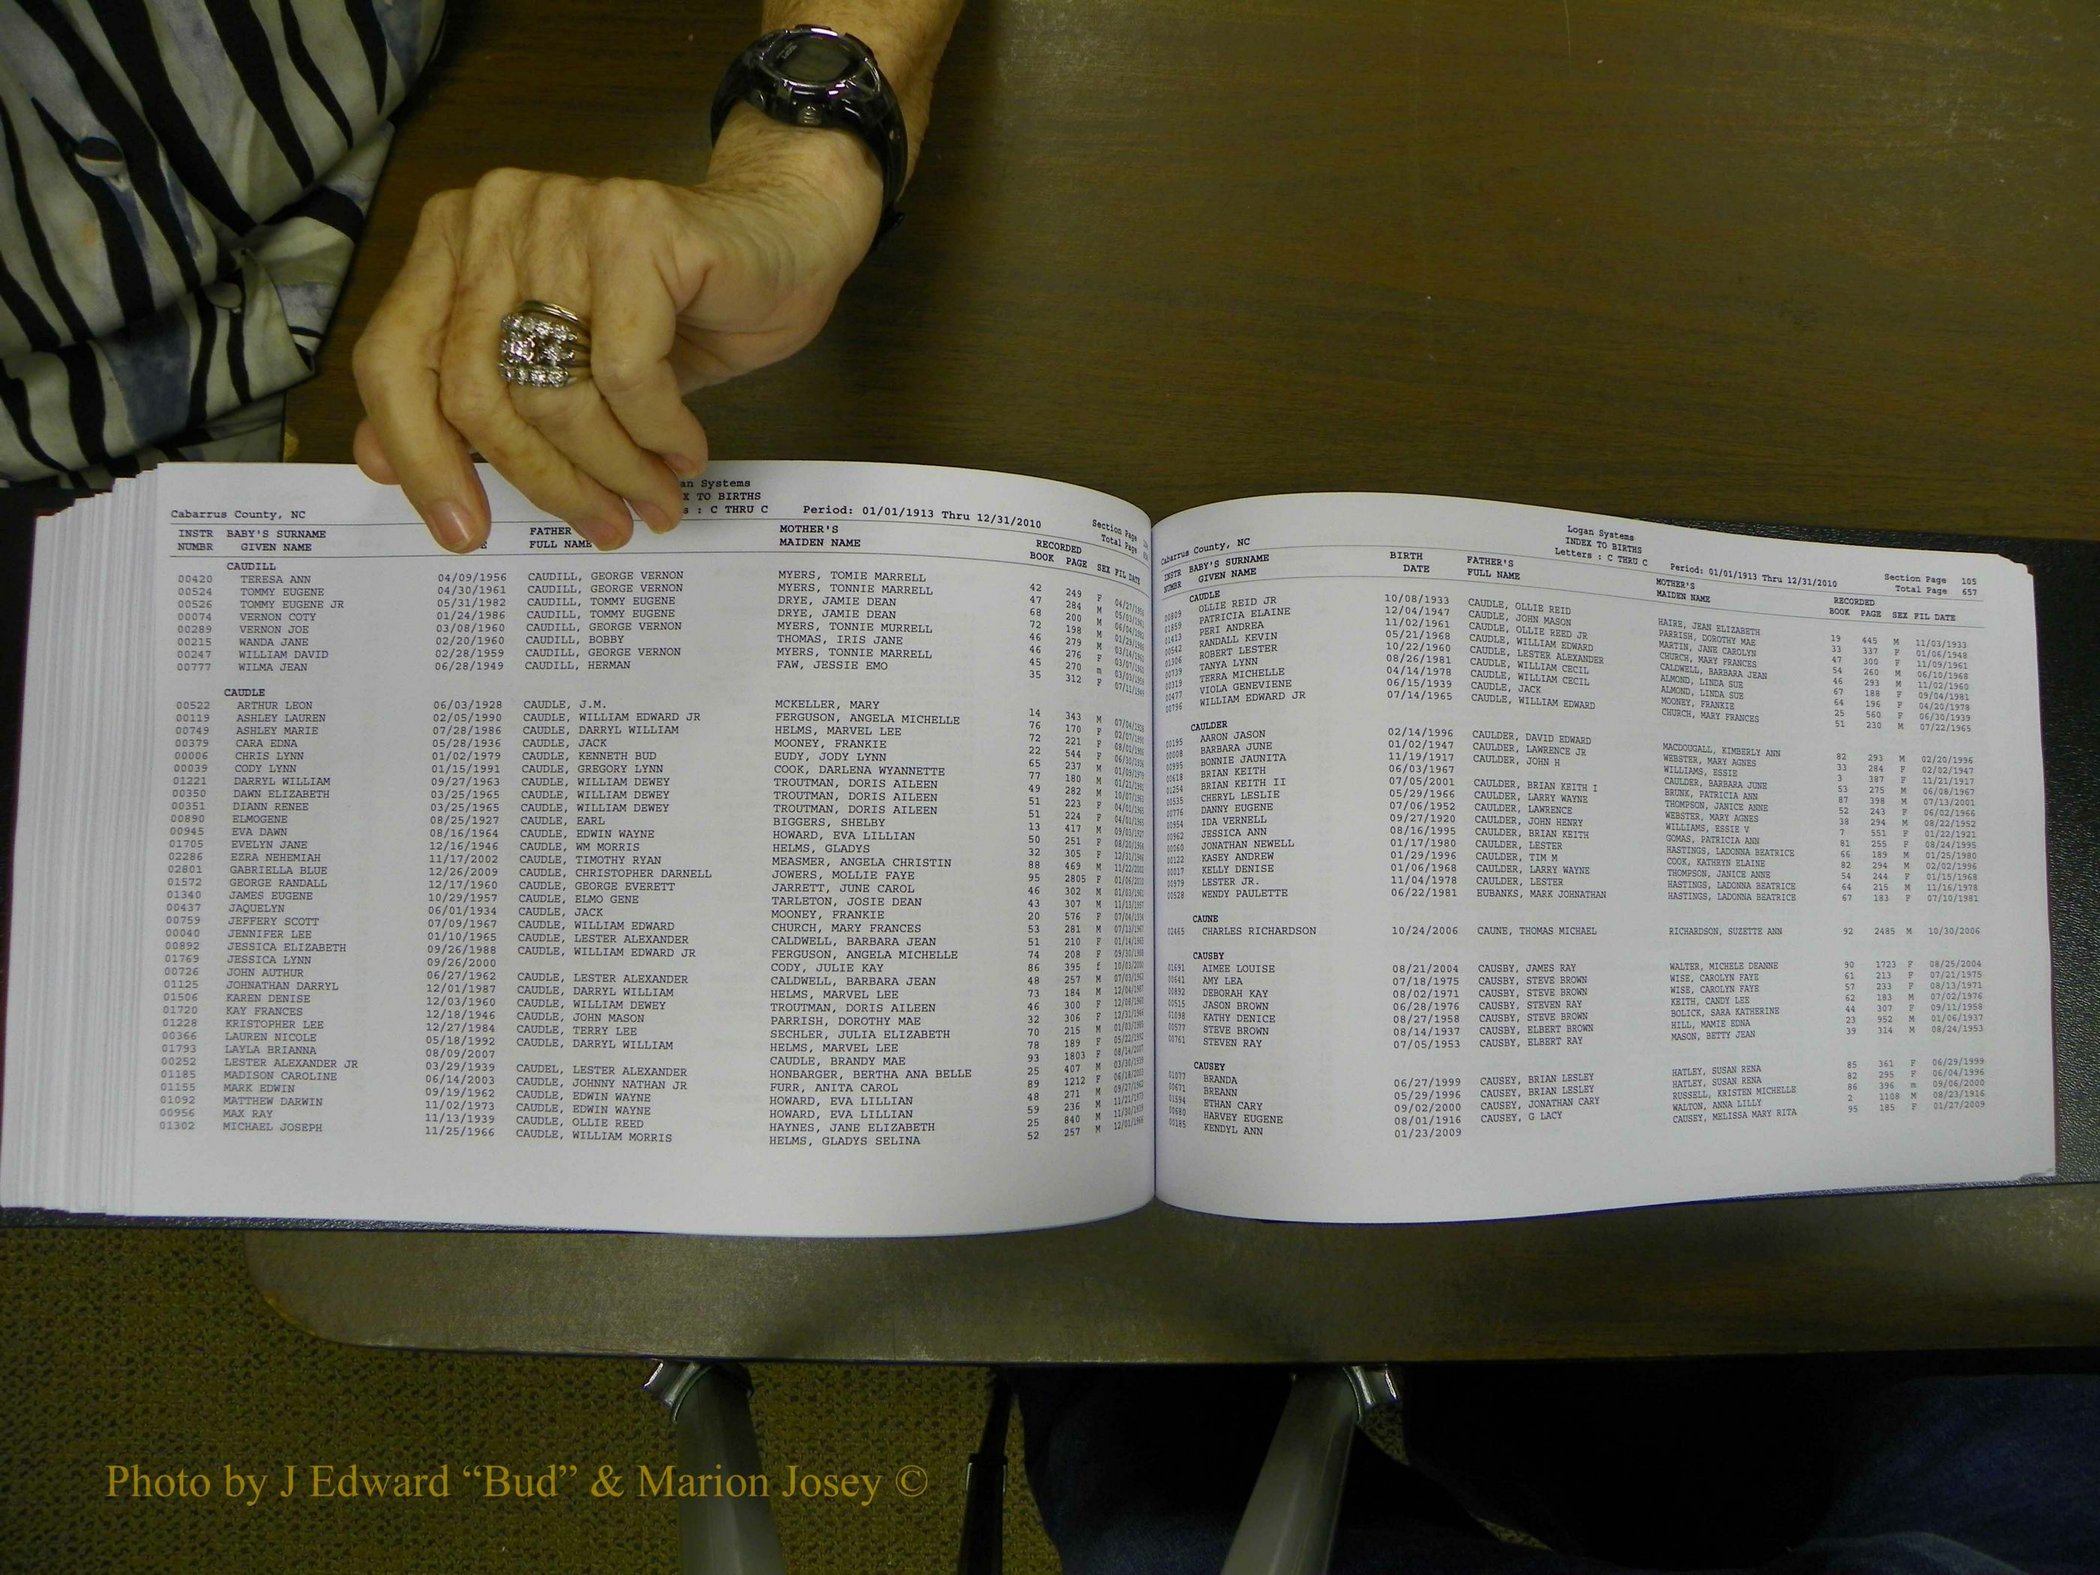 an Systems
X TO BIRTHS
Cabarrus County, NC : C THRU C Period: 01/01/1913 Thru 12/31/2010 Section Page
Total Page
INSTR BABY'S SURNAME FATHER MOTHER'S RECORDED
NUMBR GIVEN NAME FULL NAME MAIDEN NAME BOOK PAGE SEX FIL DATE
CAUDILL
00420 TERESA ANN 04/09/1956 CAUDILL, GEORGE VERNON MYERS, TOMIE MARRELL 42 249 F
00524 TOMMY EUGENE 04/30/1961 CAUDILL, GEORGE VERNON MYERS, TONNIE MARRELL 47 284 M
00526 TOMMY EUGENE JR 05/31/1982 CAUDILL, TOMMY EUGENE DRYE, JAMIE DEAN 68 200 M
00074 VERNON COTY 01/24/1986 CAUDILL, TOMMY EUGENE DRYE, JAMIE DEAN 72 198 M
00289 VERNON JOE 03/08/1960 CAUDILL, GEORGE VERNON MYERS, TONNIE MURRELL 46 279 M
00215 WANDA JANE 02/20/1960 CAUDILL, BOBBY THOMAS, IRIS JANE 46 276 F
00247 WILLIAM DAVID 02/28/1959 CAUDILL, GEORGE VERNON MYERS, TONNIE MARRELL 45 270 m
00777 WILMA JEAN 06/28/1949 CAUDILL, HERMAN FAW, JESSIE EMO 35 312 F
CAUDLE
00522 ARTHUR LEON 06/03/1928 CAUDLE, J.M. MCKELLER, MARY 14 343 M
00119 ASHLEY LAUREN 02/05/1990 CAUDLE, WILLIAM EDWARD JR FERGUSON, ANGELA MICHELLE 76 170 F
00749 ASHLEY MARIE 07/28/1986 CAUDLE, DARRYL WILLIAM HELMS, MARVEL LEE 72 221 F
00379 CARA EDNA 05/28/1936 CAUDLE, JACK MOONEY, FRANKIE 22 544 F
00006 CHRIS LYNN 01/02/1979 CAUDLE, KENNETH BUD EUDY, JODY LYNN 65 237 M
00039 CODY LYNN 01/15/1991 CAUDLE, GREGORY LYNN COOK, DARLENA WYANNETTE 77 180 M
01221 DARRYL WILLIAM 09/27/1963 CAUDLE, WILLIAM DEWEY TROUTMAN, DORIS AILEEN 49 282 M
00350 DAWN ELIZABETH 03/25/1965 CAUDLE, WILLIAM DEWEY TROUTMAN, DORIS AILEEN 51 223 F
00351 DIANN RENEE 03/25/1965 CAUDLE, WILLIAM DEWEY TROUTMAN, DORIS AILEEN 51 224 F
00890 ELMOGENE 08/25/1927 CAUDLE, EARL BIGGERS, SHELBY 13 417 M
00945 EVA DAWN 08/16/1964 CAUDLE, EDWIN WAYNE HOWARD, EVA LILLIAN 50 251 F
01705 EVELYN JANE 12/16/1946 CAUDLE, WM MORRIS HELMS, GLADYS 32 305 F
02286 EZRA NEHEMIAH 11/17/2002 CAUDLE, TIMOTHY RYAN MEASMER, ANGELA CHRISTIN 88 469 M
02801 GABRIELLA BLUE 12/26/2009 CAUDLE, CHRISTOPHER DARNELL JOWERS, MOLLIE FAYE 95 2805 F
01572 GEORGE RANDALL 12/17/1960 CAUDLE, GEORGE EVERETT JARRETT, JUNE CAROL 46 302 M
01340 JAMES EUGENE 10/29/1957 CAUDLE, ELMO GENE TARLETON, JOSIE DEAN 43 307 M
00437 JAQUELYN 06/01/1934 CAUDLE, JACK MOONEY, FRANKIE 20 576 F
00759 JEFFERY SCOTT 07/09/1967 CAUDLE, WILLIAM EDWARD CHURCH, MARY FRANCES 53 281 M
00040 JENNIFER LEE 01/10/1965 CAUDLE, LESTER ALEXANDER CALDWELL, BARBARA JEAN 51 210 F
00892 JESSICA ELIZABETH 09/26/1988 CAUDLE, WILLIAM EDWARD JR FERGUSON, ANGELA MICHELLE 74 208 F
01769 JESSICA LYNN 09/26/2000 CODY, JULIE KAY 86 395 f
00726 JOHN AUTHUR 06/27/1962 CAUDLE, LESTER ALEXANDER CALDWELL, BARBARA JEAN 48 257 M
01125 JOHNATHAN DARRYL 12/01/1987 CAUDLE, DARRYL WILLIAM HELMS, MARVEL LEE 73 184 M
01506 KAREN DENISE 12/03/1960 CAUDLE, WILLIAM DEWEY TROUTMAN, DORIS AILEEN 46 300 F
01720 KAY FRANCES 12/18/1946 CAUDLE, JOHN MASON PARRISH, DOROTHY MAE 32 306 F
01228 KRISTOPHER LEE 12/27/1984 CAUDLE, TERRY LEE SECHLER, JULIA ELIZABETH 70 215 M
00366 LAUREN NICOLE 05/18/1992 CAUDLE, DARRYL WILLIAM HELMS, MARVEL LEE 78 189 F
01793 LAYLA BRIANNA 08/09/2007 CAUDLE, BRANDY MAE 93 1803 F
00252 LESTER ALEXANDER JR 03/29/1939 CAUDEL, LESTER ALEXANDER HONBARGER, BERTHA ANA BELLE 25 407 M
01185 MADISON CAROLINE 06/14/2003 CAUDLE, JOHNNY NATHAN JR FURR, ANITA CAROL 89 1212 F
01155 MARK EDWIN 09/19/1962 CAUDLE, EDWIN WAYNE HOWARD, EVA LILLIAN 48 271 M
01092 MATTHEW DARWIN 11/02/1973 CAUDLE, EDWIN WAYNE HOWARD, EVA LILLIAN 59 236 M
00956 MAX RAY 11/13/1939 CAUDLE, OLLIE REED HAYNES, JANE ELIZABETH 25 840 M
01302 MICHAEL JOSEPH 11/25/1966 CAUDLE, WILLIAM MORRIS HELMS, GLADYS SELINA 52 257 M
Logan Systems
INDEX TO BIRTHS
Cabarrus County, NC Letters : C THRU C Period: 01/01/1913 Thru 12/31/2010 Section Page 105
Total Page 657
INSTR BABY'S SURNAME BIRTH FATHER'S MOTHER'S RECORDED
NUMBR GIVEN NAME DATE FULL NAME MAIDEN NAME BOOK PAGE SEX FIL DATE
CAUDLE
00809 OLLIE REID JR 10/08/1933 CAUDLE, OLLIE REID HAIRE, JEAN ELIZABETH 19 445 M 11/03/1933
01859 PATRICIA ELAINE 12/04/1947 CAUDLE, JOHN MASON PARRISH, DOROTHY MAE 33 337 F 01/06/1948
01413 PERI ANDREA 11/02/1961 CAUDLE, OLLIE REED JR MARTIN, JANE CAROLYN 47 300 F 11/09/1961
00542 RANDALL KEVIN 05/21/1968 CAUDLE, WILLIAM EDWARD CHURCH, MARY FRANCES 54 260 M 06/10/1968
01306 ROBERT LESTER 10/22/1960 CAUDLE, LESTER ALEXANDER CALDWELL, BARBARA JEAN 46 293 M 11/02/1960
00739 TANYA LYNN 08/26/1981 CAUDLE, WILLIAM CECIL ALMOND, LINDA SUE 67 188 F 09/04/1981
00319 TERRA MICHELLE 04/14/1978 CAUDLE, WILLIAM CECIL ALMOND, LINDA SUE 64 196 F 04/20/1978
00477 VIOLA GENEVIENE 06/15/1939 CAUDLE, JACK MOONEY, FRANKIE 25 560 F 06/30/1939
00796 WILLIAM EDWARD JR 07/14/1965 CAUDLE, WILLIAM EDWARD CHURCH, MARY FRANCES 51 230 M 07/22/1965
CAULDER
00195 AARON JASON 02/14/1996 CAULDER, DAVID EDWARD MACDOUGALL, KIMBERLY ANN 82 293 M 02/20/1996
00008 BARBARA JUNE 01/02/1947 CAULDER, LAWRENCE JR WEBSTER, MARY AGNES 33 284 F 02/02/1947
00995 BONNIE JAUNITA 11/19/1917 CAULDER, JOHN H WILLIAMS, ESSIE 3 387 F 11/21/1917
00618 BRIAN KEITH 06/03/1967 CAULDER, BARBARA JUNE 53 275 M 06/08/1967
01254 BRIAN KEITH II 07/05/2001 CAULDER, BRIAN KEITH I BRUNK, PATRICIA ANN 87 398 M 07/13/2001
00535 CHERYL LESLIE 05/29/1966 CAULDER, LARRY WAYNE THOMPSON, JANICE ANNE 52 243 F 06/02/1966
00776 DANNY EUGENE 07/06/1952 CAULDER, LAWRENCE WEBSTER, MARY AGNES 38 294 M 08/22/1952
00954 IDA VERNELL 09/27/1920 CAULDER, JOHN HENRY WILLIAMS, ESSIE V 7 551 F 01/22/1921
00962 JESSICA ANN 08/16/1995 CAULDER, BRIAN KEITH GOMAS, PATRICIA ANN 81 255 F 08/24/1995
00060 JONATHAN NEWELL 01/17/1980 CAULDER, LESTER HASTINGS, LADONNA BEATRICE 66 189 M 01/25/1980
00122 KASEY ANDREW 01/29/1996 CAULDER, TIM M COOK, KATHRYN ELAINE 82 294 M 02/02/1996
00017 KELLY DENISE 01/06/1968 CAULDER, LARRY WAYNE THOMPSON, JANICE ANNE 54 244 F 01/15/1968
00979 LESTER JR. 11/04/1978 CAULDER, LESTER HASTINGS, LADONNA BEATRICE 64 215 M 11/16/1978
00528 WENDY PAULETTE 06/22/1981 EUBANKS, MARK JOHNATHAN HASTINGS, LADONNA BEATRICE 67 183 F 07/10/1981
CAUNE
02465 CHARLES RICHARDSON 10/24/2006 CAUNE, THOMAS MICHAEL RICHARDSON, SUZETTE ANN 92 2485 M 10/30/2006
CAUSBY
01691 AIMEE LOUISE 08/21/2004 CAUSBY, JAMES RAY WALTER, MICHELE DEANNE 90 1723 F 08/25/2004
00641 AMY LEA 07/18/1975 CAUSBY, STEVE BROWN WISE, CAROLYN FAYE 61 213 F 07/21/1975
00892 DEBORAH KAY 08/02/1971 CAUSBY, STEVE BROWN WISE, CAROLYN FAYE 57 233 F 08/13/1971
00515 JASON BROWN 06/28/1976 CAUSBY, STEVEN RAY KEITH, CANDY LEE 62 183 M 07/02/1976
01098 KATHY DENICE 08/27/1958 CAUSBY, STEVE BROWN BOLICK, SARA KATHERINE 44 307 F 09/11/1958
00577 STEVE BROWN 08/14/1937 CAUSBY, ELBERT BROWN HILL, MAMIE EDNA 23 952 M 01/06/1937
00761 STEVEN RAY 07/05/1953 CAUSBY, ELBERT RAY MASON, BETTY JEAN 39 314 M 08/24/1953
CAUSEY
01077 BRANDA 06/27/1999 CAUSEY, BRIAN LESLEY HATLEY, SUSAN RENA 85 361 F 06/29/1999
00671 BREANN 05/29/1996 CAUSEY, BRIAN LESLEY HATLEY, SUSAN RENA 82 295 F 06/04/1996
01594 ETHAN CARY 09/02/2000 CAUSEY, JONATHAN CARY RUSSELL, KRISTEN MICHELLE 86 396 m 09/06/2000
00680 HARVEY EUGENE 08/01/1916 CAUSEY, G LACY WALTON, ANNA LILLY 2 1108 M 08/23/1916
00185 KENDYL ANN 01/23/2009 CAUSEY, MELISSA MARY RITA 95 185 F 01/27/2009
Photo by J Edward “Bud” & Marion Josey ©